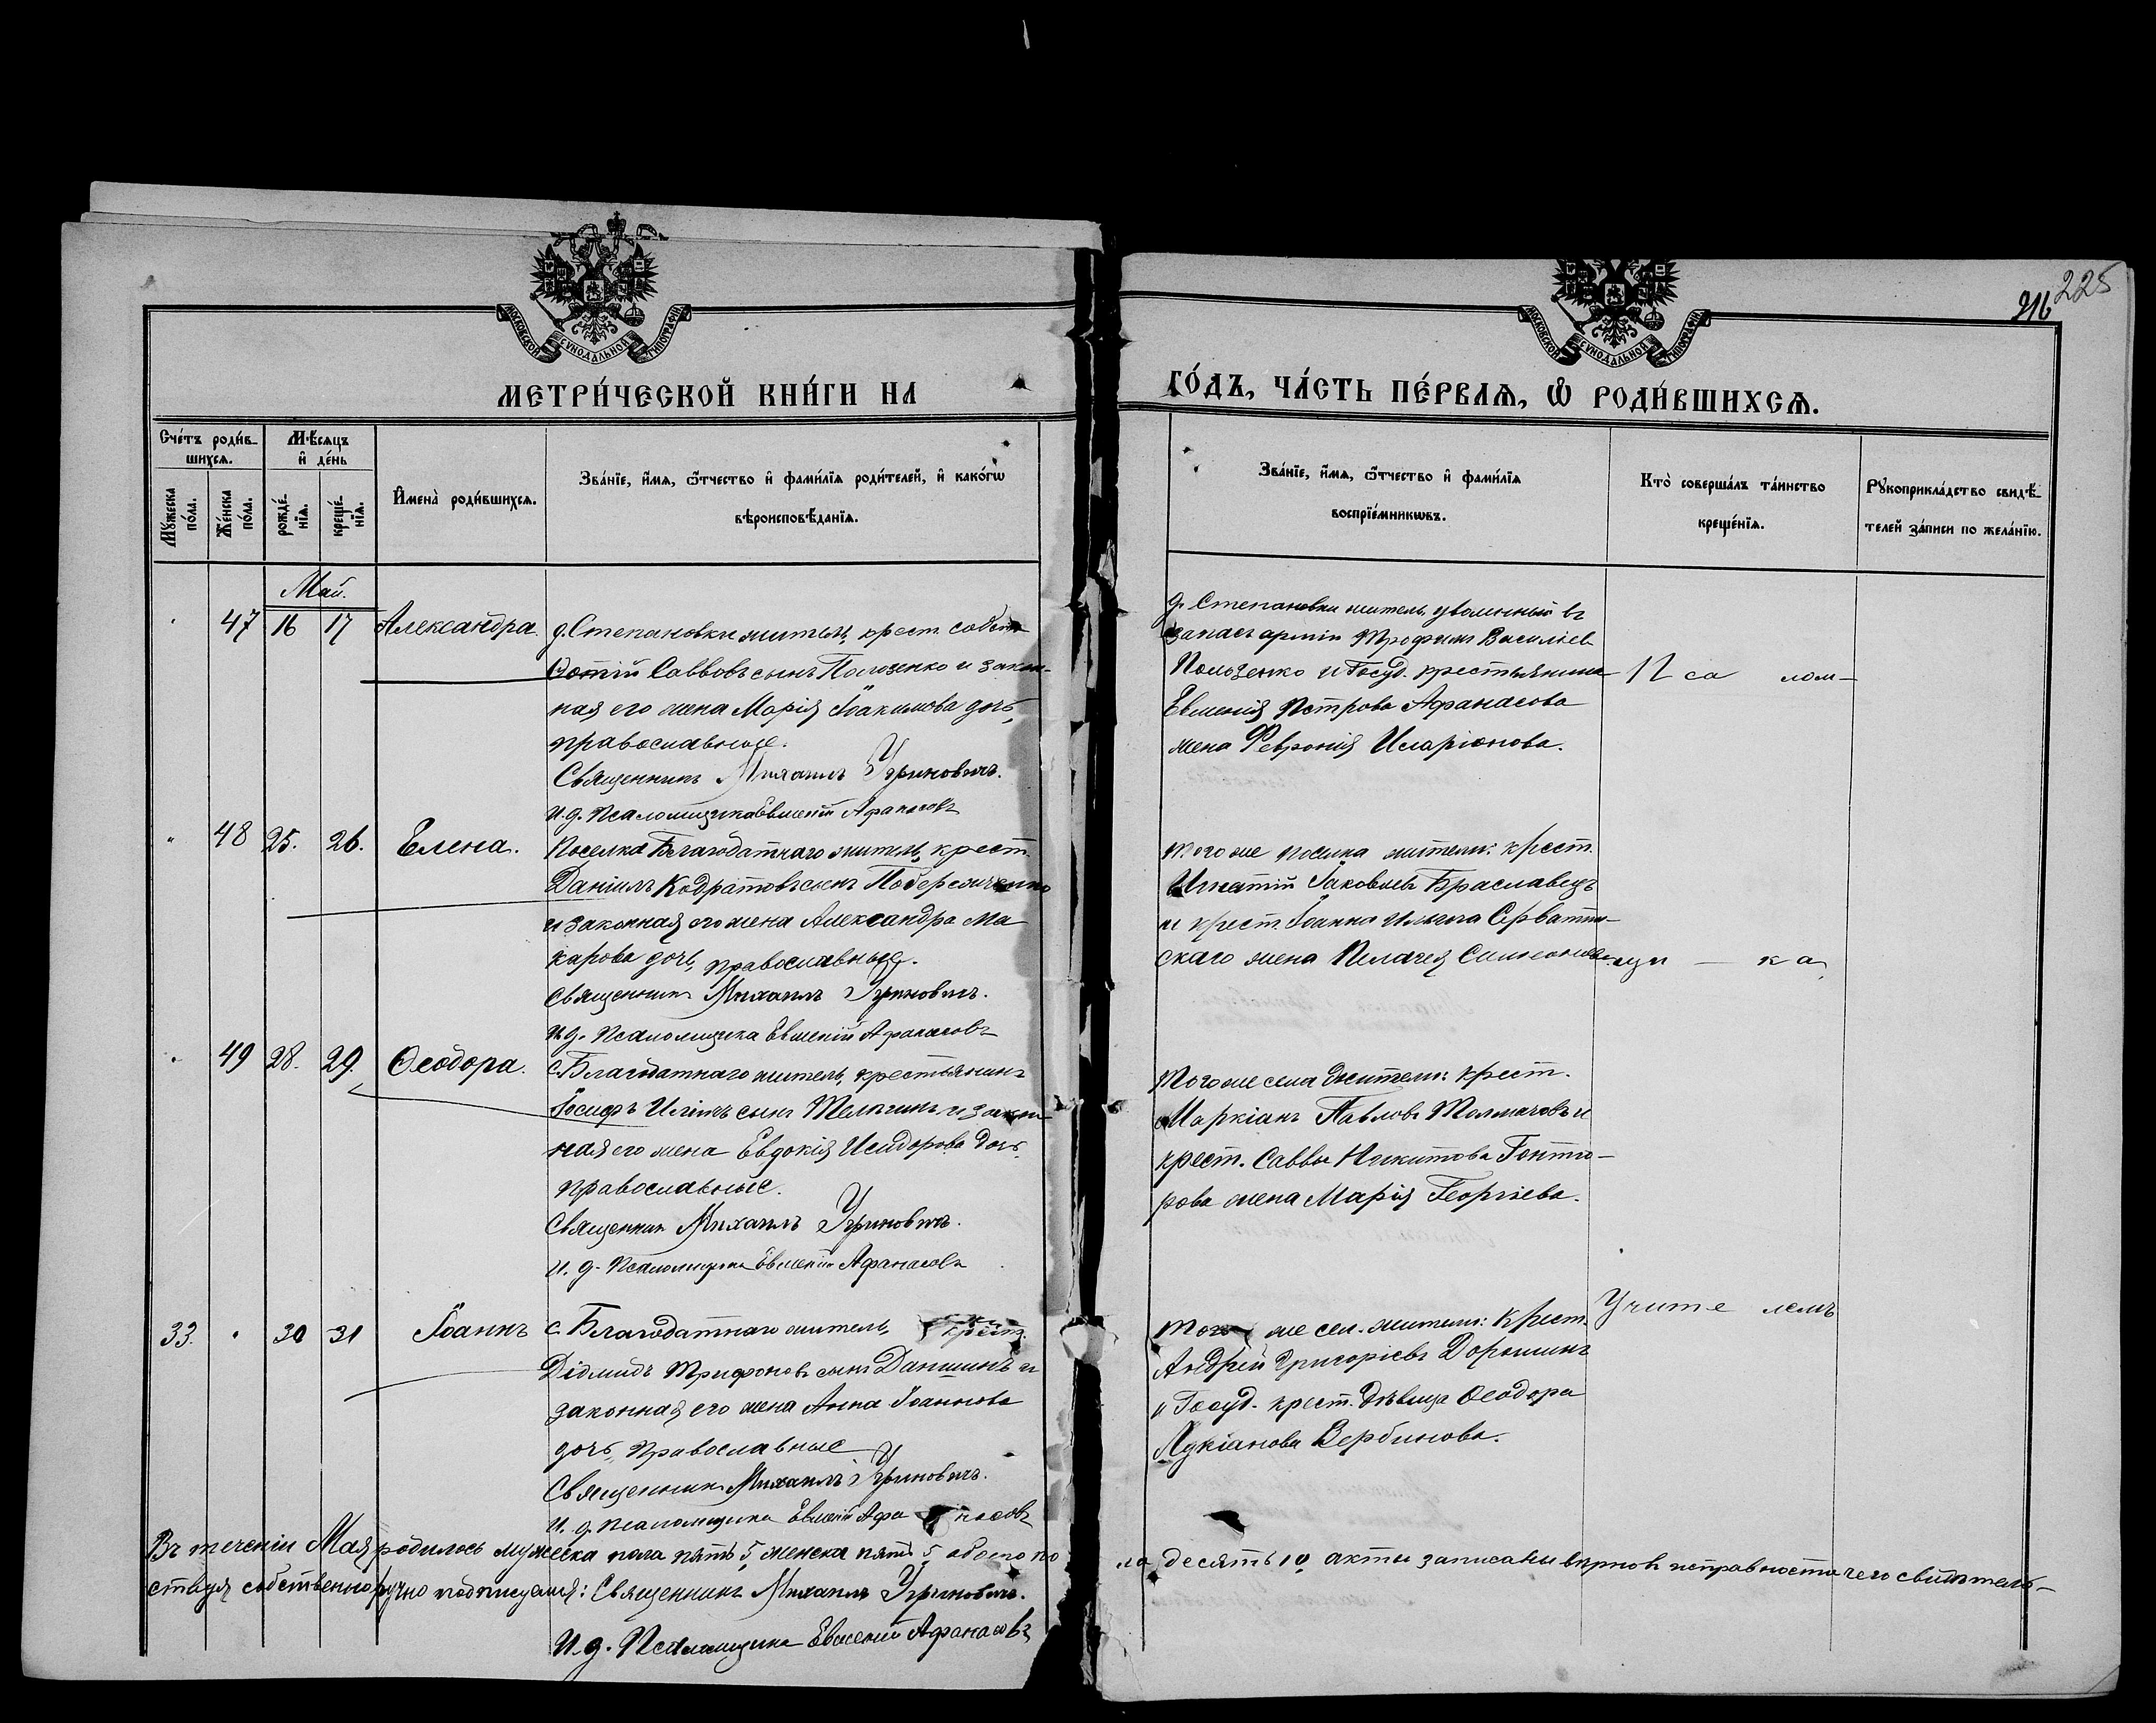 225
216
МОСКОВСКОЙ СѴНОДАЛЬНОЙ ТИПОГРАФІИ
МОСКОВСКОЙ СѴНОДАЛЬНОЙ ТИПОГРАФІИ
МЕТРИ́ЧЕСКОЙ КНИ́ГИ НА
ГО́ДЪ, ЧА́СТЬ ПЕ́РВАѦ, Ѡ҆ РОДИ́ВШИХСѦ.
Сче́тъ роди́в-
шихсѧ.
Мѣ́сѧцъ
и҆ де́нь
Мꙋжеска по́ла.
Же́нска по́ла.
рожде́нїѧ.
креще́нїѧ.
И҆мена̀ роди́вшихсѧ.
Зва́нїе, и҆́мѧ, ѻ҆́тчество и҆ фами́лїѧ роди́телей, и҆ како́гѡ
вѣроисповѣ́данїѧ.
Зва́нїе, и҆́мѧ, ѻ҆́тчество и҆ фами́лїѧ
воспрїе́мникѡвъ.
Кто̀ соверша́лъ та́инство
креще́нїѧ.
Рꙋкоприкла́дство свидѣ́-
телей за́писи по жела́нїю.
Май.
47 16 17 Александра.
д. Степановки житель, крест. собств
Фотій Саввовъ сынъ Полозенко и закон-
ная его жена Марія Іоакимова дочь,
православные.
Священникъ Михаилъ Угриновичъ.
И. д. Псаломщика Евменій Афанасовъ
д. Степановки житель, уволенный въ
запасъ арміи Трофимъ Василіев
Польженко и Госуд. крестьянина
Евменія Петрова Афанасова
жена Февронія Иларіонова.
Пса лом-
" 48 25. 26. Елена.
Поселка Благодатнаго житель, крест.
Даніилъ Кодратовъ сынъ Побережченко
и законная его жена Александра Ма
карова дочь, православные.
Священникъ Михаилъ Угриновичъ.
И. д. Псаломщика Евменій Афанасовъ
того же поселка жители: крест.
Игнатій Іаковлевъ Браславецъ
и крест. Іоанна Ильина Серватин-
скаго жена Пелагея Симеонова
щи - ка,
49 28. 29. Ѳеодора.
с. Благодатнаго житель, крестьянинъ
Іосифъ сынъ и закон-
ная его жена Евдокія Исидорова дочь,
православные.
Священникъ Михаилъ Угриновичъ.
И. д. Псаломщика Евменій Афанасовъ
того же села жители: крест.
Маркіанъ Павловъ Толмачовъ и
крест. Саввы Никитова
рова жена Марія Георгіева.
33. 30 31 Іоаннъ
с. Благодатнаго житель, крест.
Діомидъ Трифоновъ сынъ Даншинъ и
законная его жена Анна Іоаннова
дочь, православные
Священникъ Михаилъ Угриновичъ.
И. д. псаломщика Евменій Афанасовъ
того же сел. жители: крест.
Андрей Григоріевъ Дорошинъ
и Госуд. крест. дѣвица Ѳеодора
Лукіанова Вербинова.
Учите лемъ
Въ теченіи Мая родилось мужеска пола пять 5 женска пять 5 обоего по
ла десять 10 акты записаны вѣрно въ исправности чего свидѣтель-
ствуя собственноручно подписуемся: Священникъ Михаилъ Угриновичъ.
И. д. Псаломщика Евменій Афанасовъ